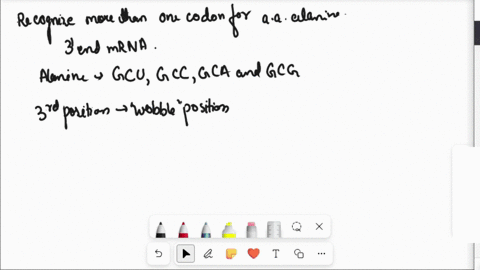 Recognize more than one codon for a.a. alanine.
3' end mRNA.
Alanine → GCU, GCC, GCA and GCG
3rd position → "wobble" position